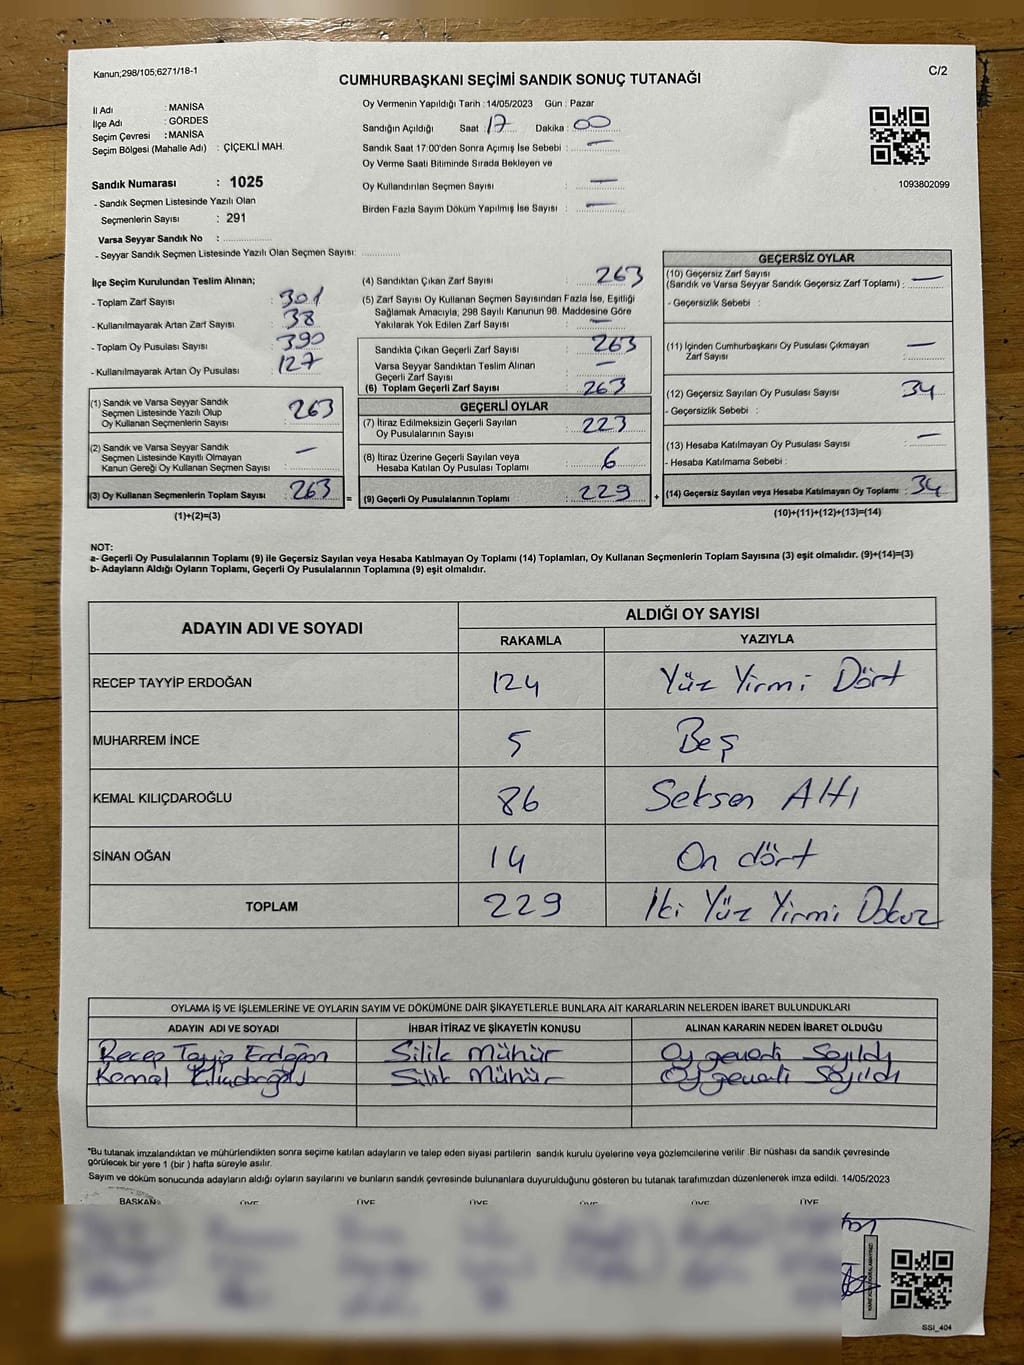 Kanun;298/105;6271/18-1
C/2
CUMHURBAŞKANI SEÇİMİ SANDIK SONUÇ TUTANAĞI
İl Adı : MANİSA
İlçe Adı : GÖRDES
Seçim Çevresi : MANİSA
Seçim Bölgesi (Mahalle Adı) : ÇİÇEKLİ MAH.
Sandık Numarası : 1025
- Sandık Seçmen Listesinde Yazılı Olan
Seçmenlerin Sayısı : 291
Varsa Seyyar Sandık No :
- Seyyar Sandık Seçmen Listesinde Yazılı Olan Seçmen Sayısı:
Oy Vermenin Yapıldığı Tarih : 14/05/2023 Gün : Pazar
Sandığın Açıldığı Saat : 17 Dakika : 00
Sandık Saat 17:00'den Sonra Açımış İse Sebebi : —
Oy Verme Saati Bitiminde Sırada Bekleyen ve
Oy Kullandırılan Seçmen Sayısı : —
Birden Fazla Sayım Döküm Yapılmış İse Sayısı : —
1093802099
İlçe Seçim Kurulundan Teslim Alınan;
- Toplam Zarf Sayısı : 301
- Kullanılmayarak Artan Zarf Sayısı : 38
- Toplam Oy Pusulası Sayısı : 390
- Kullanılmayarak Artan Oy Pusulası : 127
(1) Sandık ve Varsa Seyyar Sandık
Seçmen Listesinde Yazılı Olup
Oy Kullanan Seçmenlerin Sayısı : 263
(2) Sandık ve Varsa Seyyar Sandık
Seçmen Listesinde Kayıtlı Olmayan
Kanun Gereği Oy Kullanan Seçmen Sayısı : —
(3) Oy Kullanan Seçmenlerin Toplam Sayısı : 263
(1)+(2)=(3)
(4) Sandıktan Çıkan Zarf Sayısı : 263
(5) Zarf Sayısı Oy Kullanan Seçmen Sayısından Fazla İse, Eşitliği
Sağlamak Amacıyla, 298 Sayılı Kanunun 98. Maddesine Göre
Yakılarak Yok Edilen Zarf Sayısı : —
Sandıkta Çıkan Geçerli Zarf Sayısı : 263
Varsa Seyyar Sandıktan Teslim Alınan
Geçerli Zarf Sayısı : —
(6) Toplam Geçerli Zarf Sayısı : 263
=
GEÇERLİ OYLAR
(7) İtiraz Edilmeksizin Geçerli Sayılan
Oy Pusulalarının Sayısı : 223
(8) İtiraz Üzerine Geçerli Sayılan veya
Hesaba Katılan Oy Pusulası Toplamı : 6
(9) Geçerli Oy Pusulalarının Toplamı : 229
+
GEÇERSİZ OYLAR
(10) Geçersiz Zarf Sayısı
(Sandık ve Varsa Seyyar Sandık Geçersiz Zarf Toplamı) : —
- Geçersizlik Sebebi :
(11) İçinden Cumhurbaşkanı Oy Pusulası Çıkmayan
Zarf Sayısı : —
(12) Geçersiz Sayılan Oy Pusulası Sayısı : 34
- Geçersizlik Sebebi :
(13) Hesaba Katılmayan Oy Pusulası Sayısı : —
- Hesaba Katılmama Sebebi :
(14) Geçersiz Sayılan veya Hesaba Katılmayan Oy Toplamı : 34
(10)+(11)+(12)+(13)=(14)
NOT:
a- Geçerli Oy Pusulalarının Toplamı (9) ile Geçersiz Sayılan veya Hesaba Katılmayan Oy Toplamı (14) Toplamları, Oy Kullanan Seçmenlerin Toplam Sayısına (3) eşit olmalıdır. (9)+(14)=(3)
b- Adayların Aldığı Oyların Toplamı, Geçerli Oy Pusulalarının Toplamına (9) eşit olmalıdır.
ADAYIN ADI VE SOYADI
ALDIĞI OY SAYISI
RAKAMLA YAZIYLA
RECEP TAYYİP ERDOĞAN 124 Yüz Yirmi Dört
MUHARREM İNCE 5 Beş
KEMAL KILIÇDAROĞLU 86 Seksen Altı
SİNAN OĞAN 14 On dört
TOPLAM 229 İki Yüz Yirmi Dokuz
OYLAMA İŞ VE İŞLEMLERİNE VE OYLARIN SAYIM VE DÖKÜMÜNE DAİR ŞİKAYETLERLE BUNLARA AİT KARARLARIN NELERDEN İBARET BULUNDUKLARI
ADAYIN ADI VE SOYADI İHBAR İTİRAZ VE ŞİKAYETİN KONUSU ALINAN KARARIN NEDEN İBARET OLDUĞU
Recep Tayyip Erdoğan Silik Mühür Oy geçerli Sayıldı
Kemal Kılıçdaroğlu Silik Mühür Oy geçerli Sayıldı
*Bu tutanak imzalandıktan ve mühürlendikten sonra seçime katılan adayların ve talep eden siyasi partilerin sandık kurulu üyelerine veya gözlemcilerine verilir .Bir nüshası da sandık çevresinde
görülecek bir yere 1 (bir ) hafta süreyle asılır.
Sayım ve döküm sonucunda adayların aldığı oyların sayılarını ve bunların sandık çevresinde bulunanlara duyurulduğunu gösteren bu tutanak tarafımızdan düzenlenerek imza edildi. 14/05/2023
BAŞKAN ÜYE ÜYE ÜYE ÜYE ÜYE ÜYE
SSİ_404